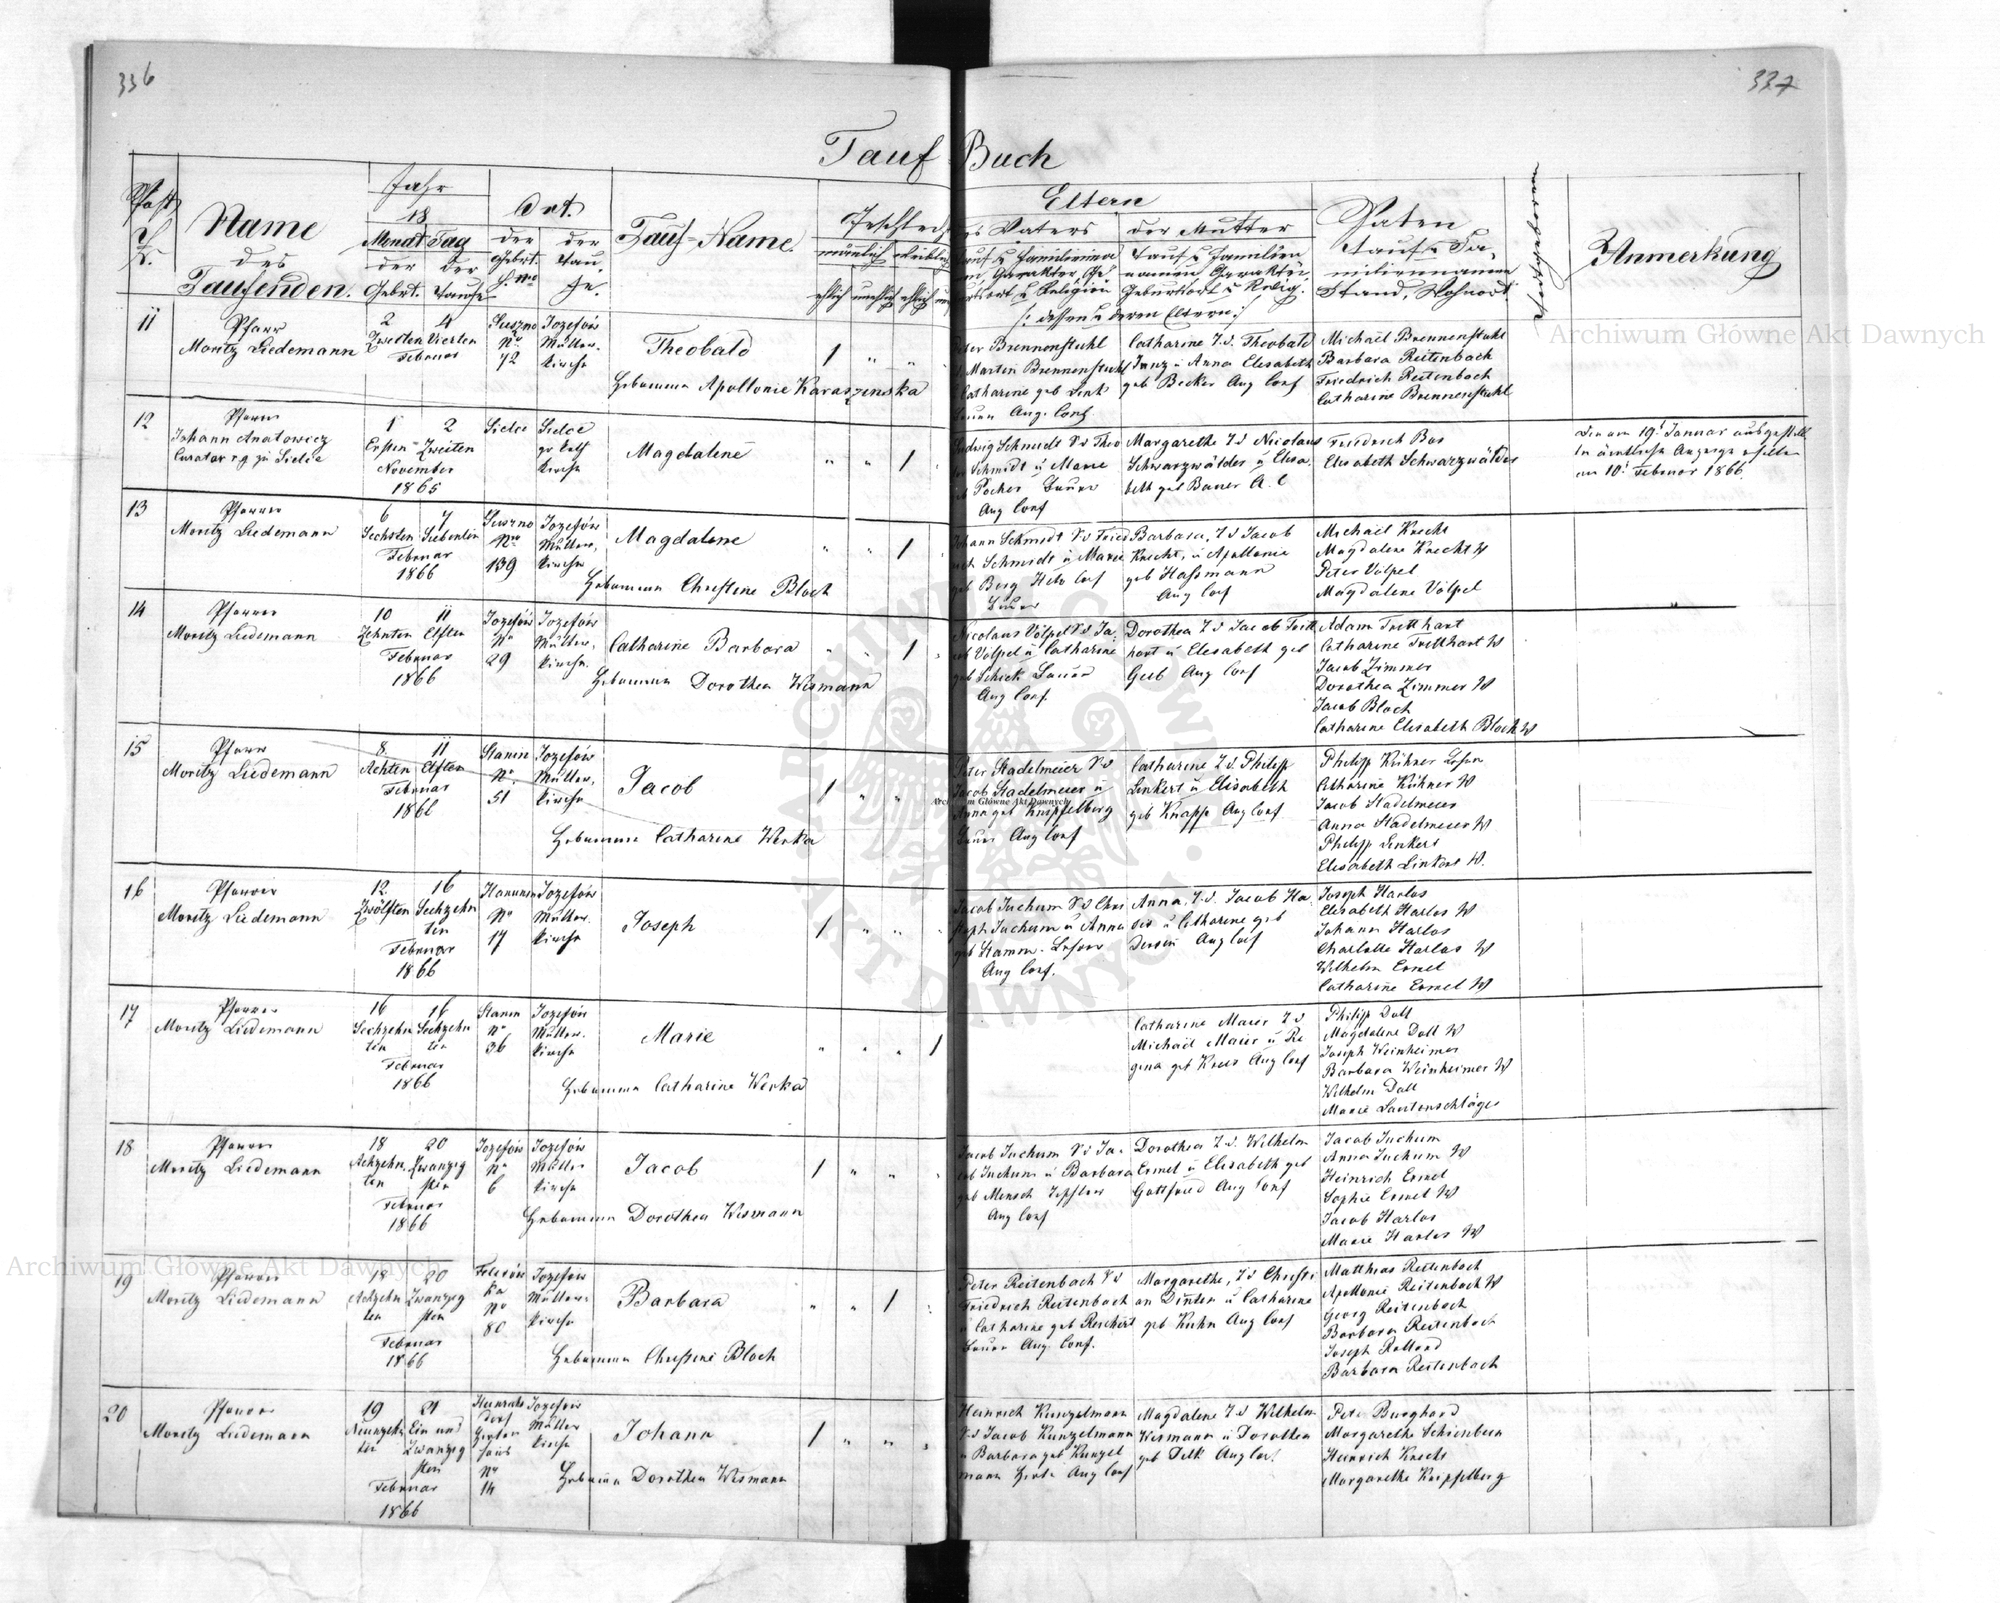 336
337
Tauf Buch
Post
Name
des
Taufenden.
Jahr
18
Monat Tag
der der
Geburt Taufe
Ort.
der der
Geburt. Tau-
H. No fe.
Tauf-Name.
Geschlecht
männlich weiblich
ehlich unehlich ehlich
Eltern
des Vaters
der Mutter
Tauf u Familien
namen Charakter
Geburtsort u Relig.
/: dessen u deren Eltern :/
Paten
Tauf u Fa-
miliennamen
Stand, Wohnort
Anmerkung
11
Pfarr
Moritz Liedemann
2 4
Zweiten Vierten
Februar
Suszno
No
72
Jozefów
Mutter-
kirche
Theobald
1 " "
Hebamme Apollonie Karaszinska
Peter Brennenstuhl
Martin Brennenstuhl
Catharine geb Link
Bauer Aug. Conf.
Catharine T.d. Theobald
Junz u Anna Elisabeth
geb Becker Aug Conf
Michael Brennenstuhl
Barbara Reitenbach
Friedrich Reitenbach
Catharine Brennenstuhl
12
Pfarrer
Johann Anatowicz
Curator r.g. zu Sielce
1 2
Ersten Zweiten
November
1865
Sielce
Sielce
gr kath
kirche
Magdalene
" " 1
Ludwig Schmidt S.d Theo
Schmidt u Marie
geb Pocher Bauer
Aug Conf
Margarethe T.d Nicolaus
Schwarzwälder u Elisa-
beth geb Bauer A. C
Friedrich Bas
Elisabeth Schwarzwälder
Den am 19t Januar ausgestell
am 10t Februar 1866.
13
Pfarrer
Moritz Liedemann
6 7
Sechsten Siebenten
Februar
1866
Suszno
No
139
Jozefów
Mutter-
kirche
Magdalene
" " 1
Hebamme Christine Bloch
Johann Schmidt S.d Fried
rich Schmidt u Marie
geb Berg Helv Conf
Bauer
Barbara, T.d Jacob
Knecht, u Apollonie
geb Hassmann
Aug Conf
Michael Knecht
Magdalene Knecht W
Peter Völpel
Magdalene Völpel
14
Pfarrer
Moritz Liedemann
10 11
Zehnten Elften
Februar
1866
Jozefów
No
29
Jozefów
Mutter-
kirche.
Catharine Barbara
" " 1
Hebamme Dorothea Wismann
Nicolaus Völpel S.d Ja-
cob Völpel u Catharine
geb Schick Bauer
Aug Conf.
Dorothea T.d Jacob Trett
hart u Elisabeth geb
Geib Aug Conf
Adam Tretthart
Catharine Tretthart W
Jacob Zimmer
Dorothea Zimmer W
Jacob Bloch
Catharine Elisabeth Bloch W
15
Pfarr
Moritz Liedemann
8. 11
Achten Elften
Februar
1866
Stanin
No
51
Jozefów
Mutter-
kirche
Jacob
1 " "
Hebamme Catharine Werka
Peter Stadelmeier S.d
Jacob Stadelmeier u
Anna geb Knipfelberg
Bauer Aug Conf
Catharine T.d. Philipp
Linkert u Elisabeth
geb Knapp Aug Conf
Philipp Kühner
Catharine Kühner W
Jacob Stadelmeier
Anna Stadelmeier W
Philipp Linkert
Elisabeth Linkert W.
16
Pfarrer
Moritz Liedemann
12. 16
Zwölften Sechzehn
ten
Februar
1866
No
17
Jozefów
Mutter-
kirche
Joseph
1 " "
Jacob Juchum S.d Chri
stoph Juchum u Anna
geb Stamm
Aug Conf.
Anna, T.d. Jacob Ha
u Catharine geb
Aug Conf
Joseph Harlos
Elisabeth Harlos W
Johann Harlos
Charlotte Harlos W
Wilhelm Ermel
Catharine Ermel W
17
Pfarrer
Moritz Liedemann
16 16
Sechzehn Sechzehn
ten ten
Februar
1866
Stanin
No
36
Jozefów
Mutter-
kirche
Marie
" " " 1
Hebamme Catharine Werka
Catharine Maier T.d
Michael Maier u Re
gina geb Aug Conf
Philipp Doll
Magdalene Doll W
Joseph Weinheimer
Barbara Weinheimer W
Wilhelm Doll
Marie Lautenschläger
18
Pfarrer
Moritz Liedemann
18 20
Achzehn Zwanzig
ten sten
Februar
1866
Jozefów
No
6
Jozefów
Mutter
kirche
Jacob
1 " " "
Hebamme Dorothea Wismann
Jacob Juchum S.d Ja-
cob Juchum u Barbara
geb Mensch
Aug Conf
Dorothea T.d. Wilhelm
Ermel u Elisabeth geb
Gottfried Aug Conf
Jacob Juchum
Anna Juchum W
Heinrich Ermel
Sophie Ermel W
Jacob Harlos
Marie Harlos W
19
Pfarrer
Moritz Liedemann
18 20
Achzehn Zwanzig
ten sten
Februar
1866
No
80
Jozefów
Mutter-
kirche
Barbara
" " 1
Hebamme Christine Bloch
Peter Reitenbach S.d
Friedrich Reitenbach
u Catharine geb Reichert
Bauer Aug. Conf.
Margarethe, T.d Christi
an Dinter u Catharine
geb Kuhn Aug Conf
Matthias Reitenbach
Apollonie Reitenbach W
Georg Reitenbach
Barbara Reitenbach
Joseph Rolland
Barbara Reitenbach
20
Pfarrer
Moritz Liedemann
19 21
Neunzehn Ein und
ten Zwanzig
sten
Februar
1866
Heinrichs
dorf
Hirten
haus
No
14
Jozefow
Mutter
kirche
Johann
1 " " "
Hebamme Dorothea Wismann
Heinrich Kunzelmann
S.d Jacob Kunzelmann
u Barbara geb Kunzel
mann Hirte Aug Conf
Magdalene T.d Wilhelm
Wismann u Dorothea
geb Dilk Aug Con.
Peter Burghard
Margarethe Schienbein
Heinrich Knecht
Margarethe Knipfelberg
Archiwum Główne Akt Dawnych
Archiwum Główne Akt Dawnych
Archiwum Główne Akt Dawnych
ARCHIWUM GŁÓWNE AKT DAWNYCH